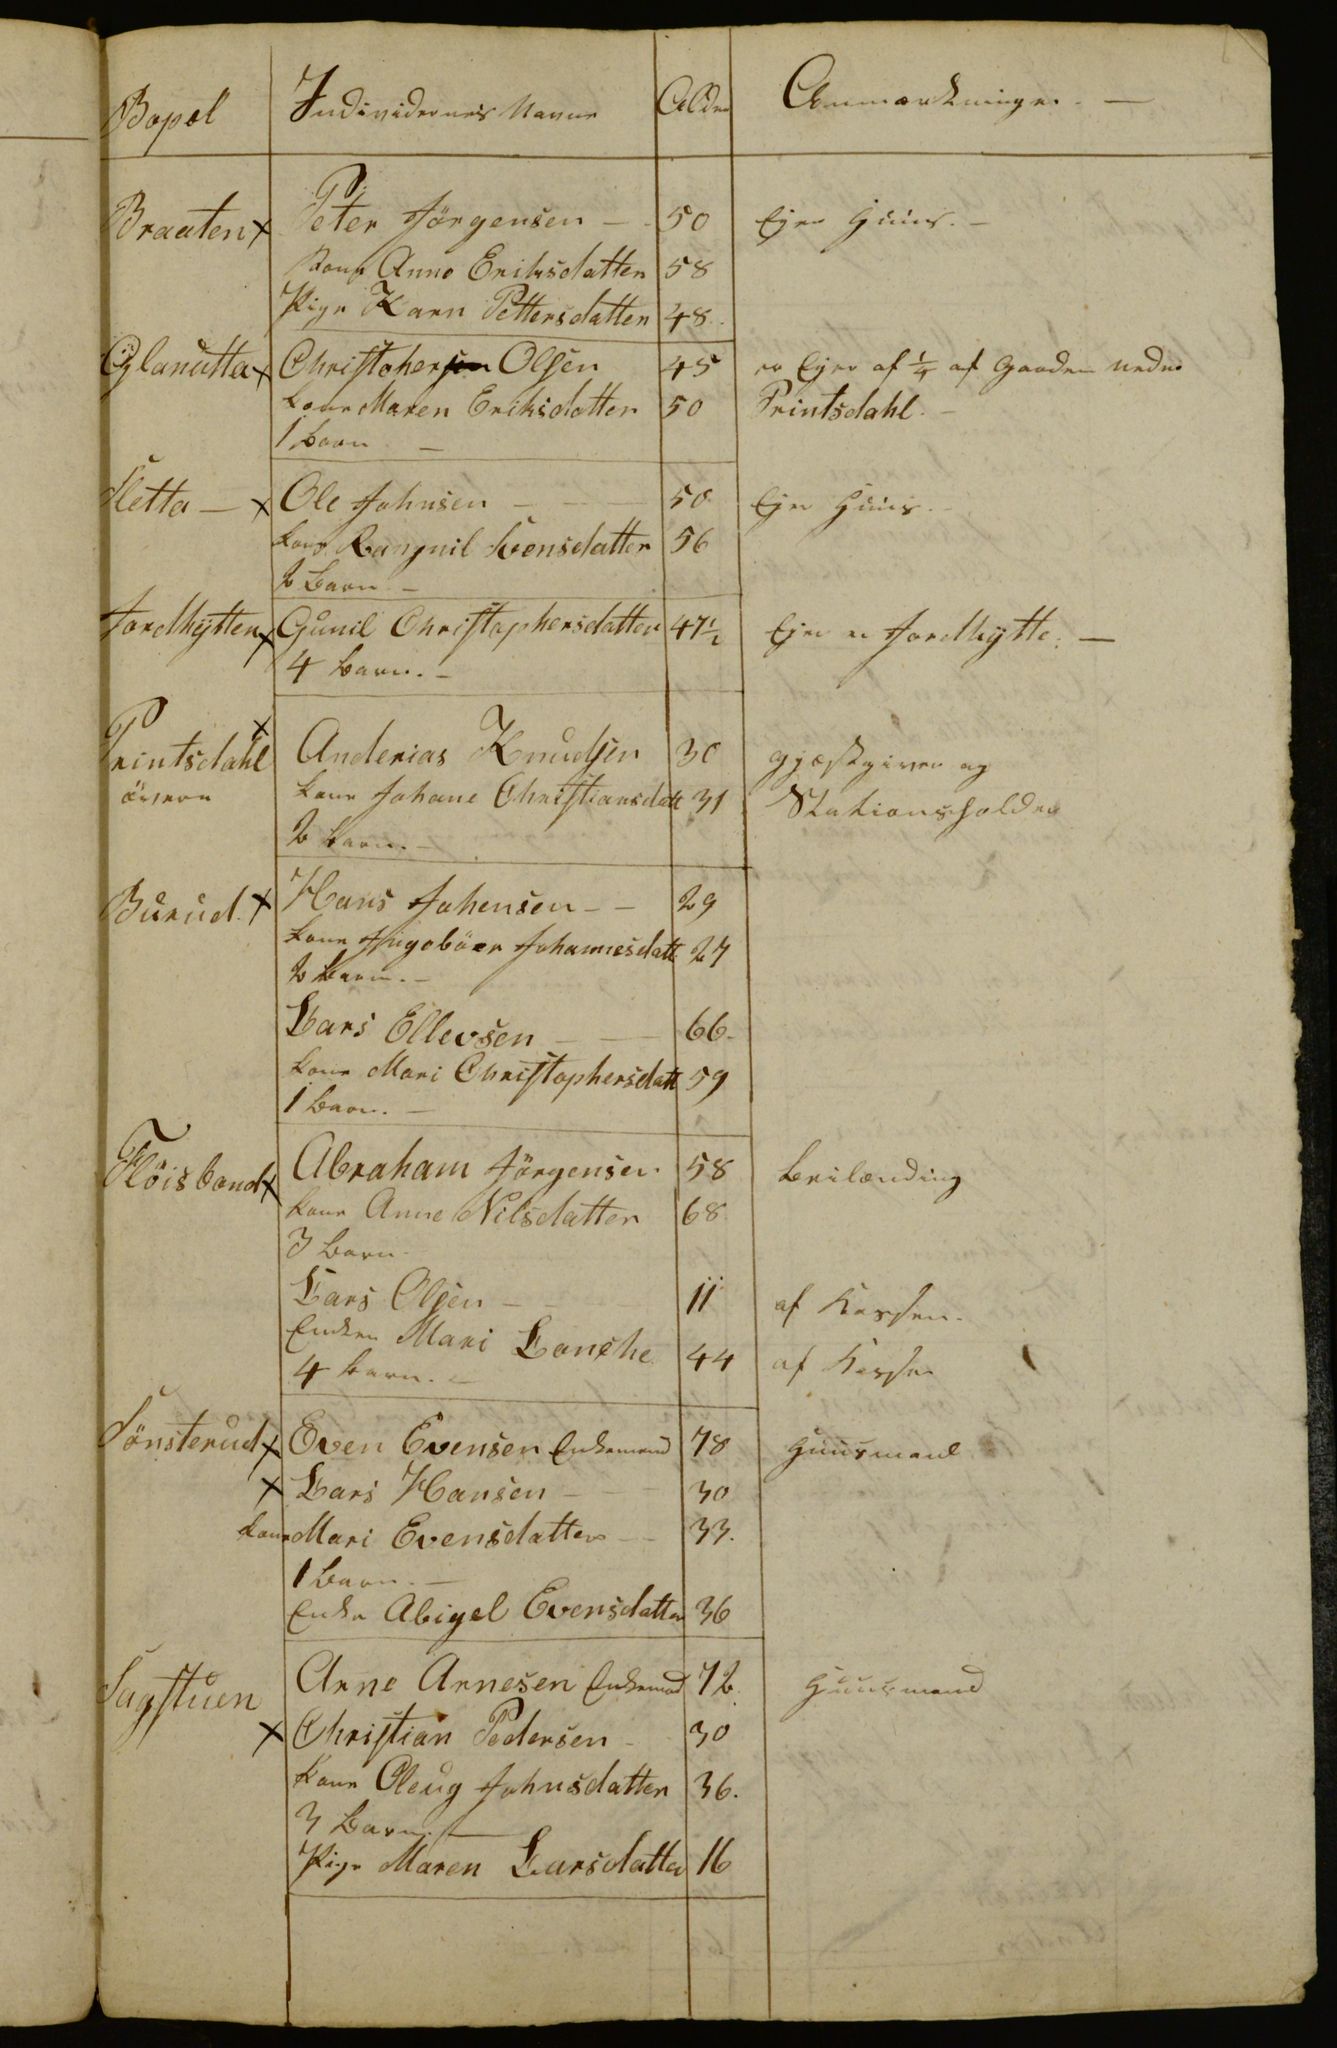 Bopæl Individernes Navne Alder Anmærkninger. —
Braaten x Peter Jörgensen — 50 Ejer Huus. —
Kone Anne Eriksdatter 58
Pige Karn Pettersdatter 48.
Glanutta x Christohersen Olsen 45 er Ejer af 1/4 af Gaarden nedre
kone Maren Eriksdatter 50 Printsdahl. —
1 barn —
Sletta — x Ole Johnsen — 50 Ejer Huus. —
kone Rangnil Svensdatter 56
2 barn —
Jordhÿtten x Gunil Christophersdatter 47½ Ejer en Jordhÿtte. —
4 barn. —
Printsdahl x Anderias Knudsen 30 gjæstgiver og
övere kone Johane Christiansdatt 31 Stationsholder
2 barn. —
Burud. x Hans Johensen — — 29
kone Ingeböer Johannesdatt. 27
2 barn. —
Lars Ellevsen — — 66.
kone Mari Christophersdatt 59
1 barn. —
Flöisbond x Abraham Jörgensen 58 beilænding
kone Anne Nilsdatter 68
3 barn
Lars Olsen — 11 af Kassen.
Enken Mari 44 af Kassen
4 barn. —
Sönsterud x Even Evensen Enkemand 78 Huusmand
x Lars Hansen — 30
kone Mari Evensdatter — 33.
1 barn. —
Enke Abigel Evensdatter 36
Sagstuen Arne Arnesen Enkemand 72. Huusmand
x Christian Pedersen — 30
kone Oleug Johnsdatter 36.
3 barn. —
Pige Maren Larsdatter 16